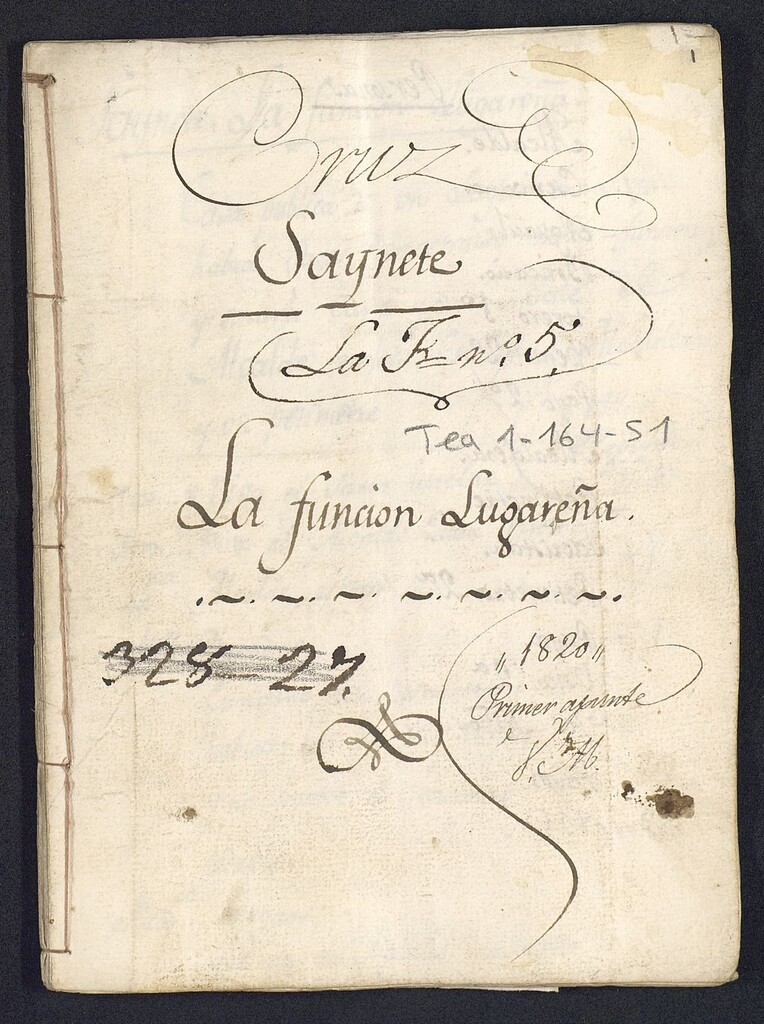 Cruz
Saynete
La F n.º 5.
Tea 1-164-51
La funcion Lugareña.
328-27.
„ 1820 „
Primer apunte